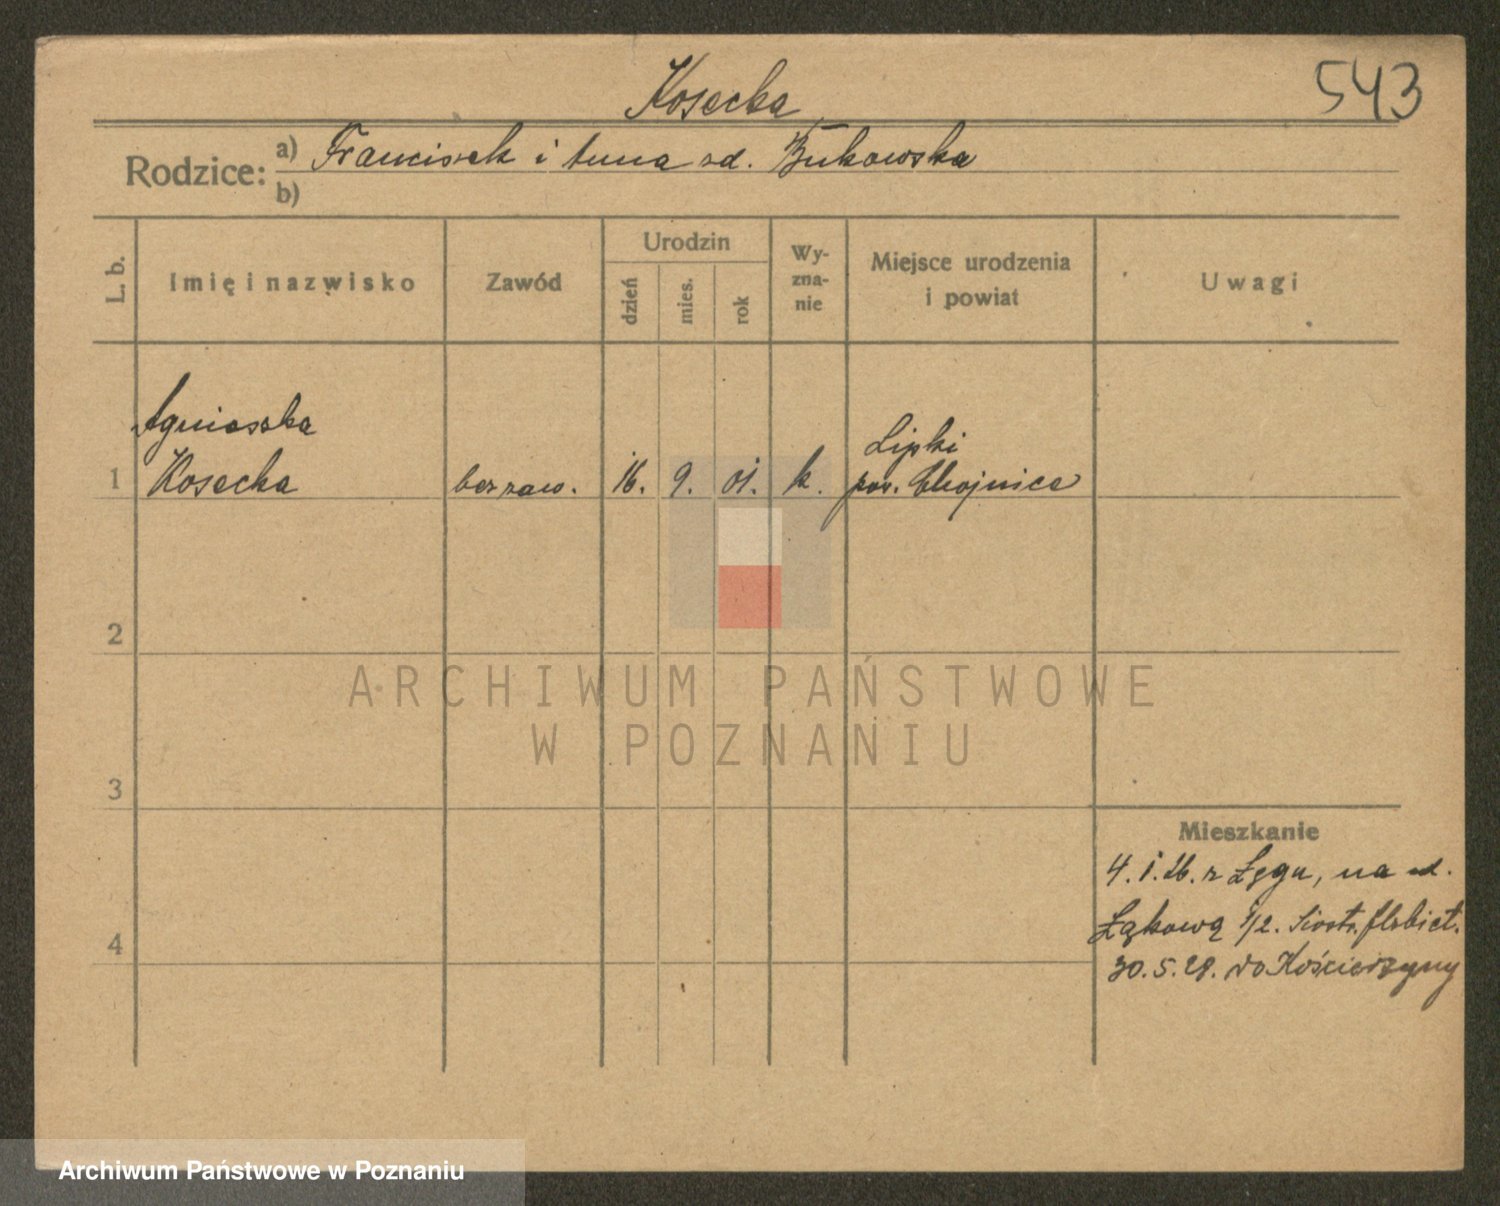 543
Kosecka
Rodzice: a) Franciszek i Anna zd. Bukowska
b)
L. b.
Imię i nazwisko
Zawód
Urodzin
dzień
mies.
rok
Wy-
zna-
nie
Miejsce urodzenia
i powiat
Uwagi
Agnieszka
Lipki
1 Kosecka bez zaw. 16. 9. 01. k. pow. Chojnice
2
ARCHIWUM PAŃSTWOWE
W POZNANIU
3
Mieszkanie
4. 1. 26. z Łęgu, na
Łąkową 1/2. Siostr. Elżbiet.
4
30. 5. 28. do Kościerzyny
Archiwum Państwowe w Poznaniu